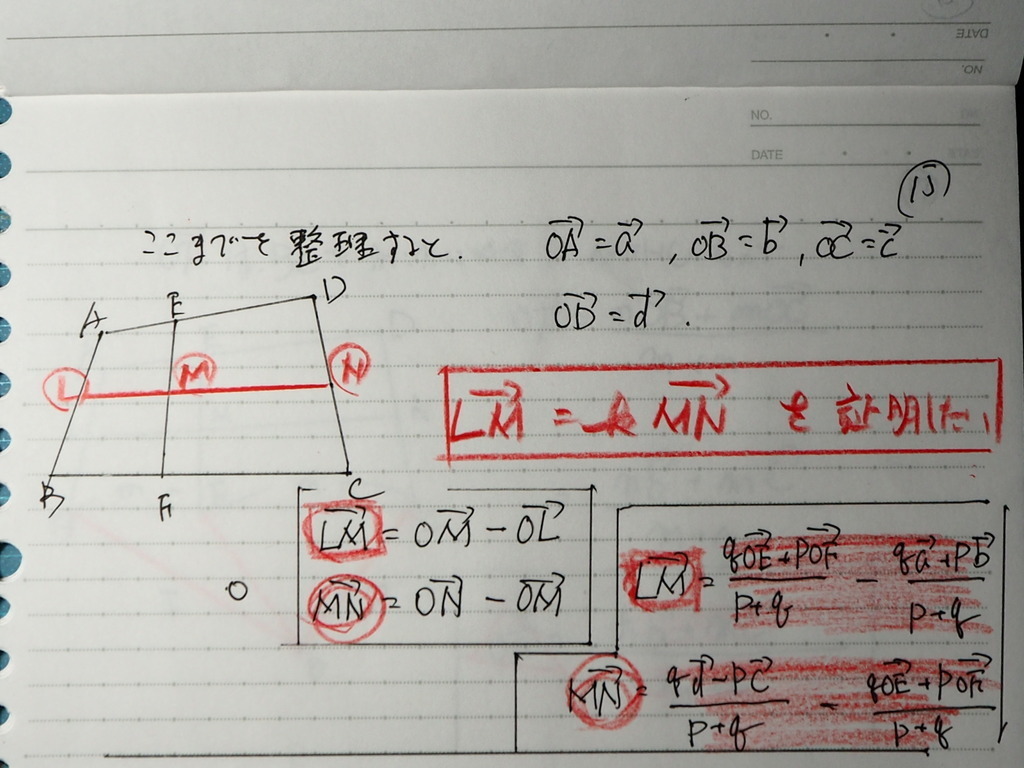 DATE
NO.
NO.
DATE
15
ここまでを整理すると. OA→ = a→ , OB→ = b→ , OC→ = c→
OD→ = d→ .
A E D
L M N
LM→ = k MN→ を証明したい
B F C
LM→ = OM→ − OL→
O MN→ = ON→ − OM→
LM→ = (qOE→ + pOF→)/(p+q) − (qa→ + pb→)/(p+q)
MN→ = (qd→ − pc→)/(p+q) − (qOE→ + pOF→)/(p+q)